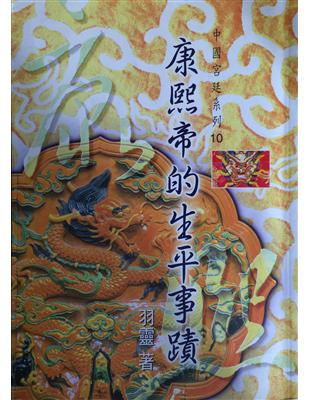 中國宮廷系列10
康熙帝的生平事蹟
羽靈 著